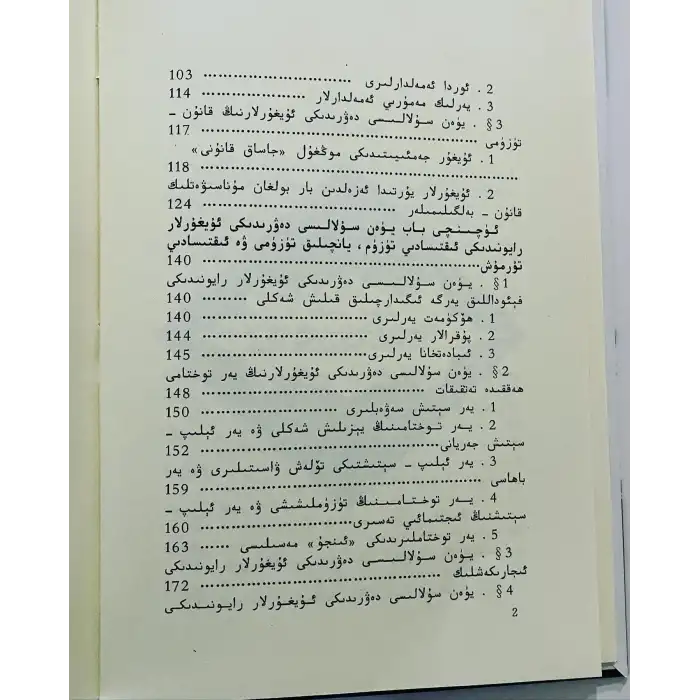 2 . ئوردا ئەمەلدارلىرى ................................ 103
3 . يەرلىك مەمۇرىي ئەمەلدارلار ...................... 114
§3 . يۈەن سۇلالىسى دەۋرىدىكى ئۇيغۇرلارنىڭ قانۇن –
تۈزۈمى ................................................ 117
1 . ئۇيغۇر جەمئىيىتىدىكى موڭغۇل «جاساق قانۇنى»
................................................ 118
2 . ئۇيغۇرلار يۇرتىدا ئەزەلدىن بار بولغان مۇناسىۋەتلىك
قانۇن – بەلگىلىمىلەر ................................ 124
ئۈچىنچى باب يۈەن سۇلالىسى دەۋرىدىكى ئۇيغۇرلار
رايونىدىكى ئىقتىسادىي تۈزۈم، يانچىلىق تۈزۈمى ۋە ئىقتىسادىي
تۇرمۇش................................................ 140
§1 . يۈەن سۇلالىسى دەۋرىدىكى ئۇيغۇرلار رايونىدىكى
فېئوداللىق يەرگە ئىگىدارچىلىق قىلىش شەكلى ......... 140
1 . ھۆكۈمەت يەرلىرى ................................ 140
2 . پۇقرالار يەرلىرى ................................ 144
3 . ئىبادەتخانا يەرلىرى................................ 145
§2 . يۈەن سۇلالىسى دەۋرىدىكى ئۇيغۇرلارنىڭ يەر توختامى
ھەققىدە تەتقىقات ................................ 148
1 . يەر سېتىش سەۋەبلىرى ............................ 150
2 . يەر توختامىنىڭ يېزىلىش شەكلى ۋە يەر ئېلىپ –
سېتىش جەريانى........................................ 152
3 . يەر ئېلىپ – سېتىشتىكى تۆلەش ۋاسىتىلىرى ۋە يەر
باھاسى ................................................ 159
4 . يەر توختامىنىڭ تۈزۈملىشىشى ۋە يەر ئېلىپ –
سېتىشنىڭ ئىجتىمائىي تەسىرى........................ 160
5 . يەر توختاملىرىدىكى «ئىنجۇ» مەسىلىسى ...... 163
§3 . يۈەن سۇلالىسى دەۋرىدىكى ئۇيغۇرلار رايونىدىكى
ئىجارىكەشلىك ........................................ 172
§4 . يۈەن سۇلالىسى دەۋرىدىكى ئۇيغۇرلار رايونىدىكى
2